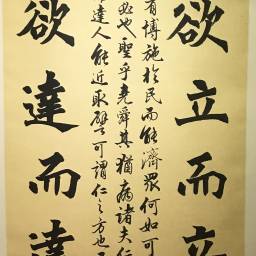 欲立而立
有博施於民而能濟眾何如可
必也聖乎堯舜其猶病諸夫仁
達人能近取譬可謂仁之方也
欲達而達